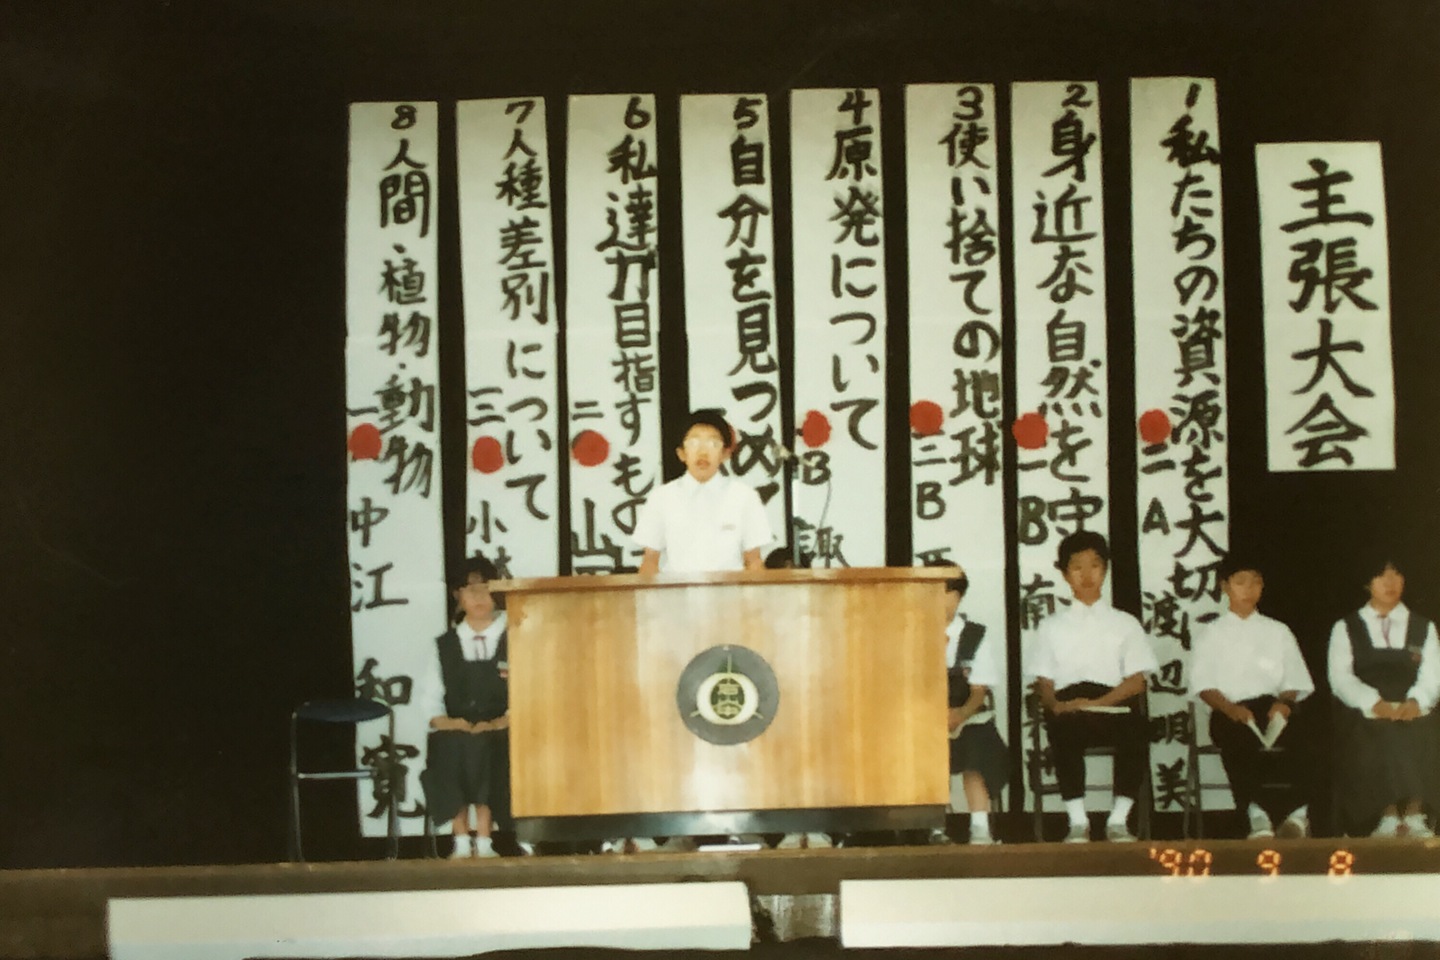 主張大会
1 私たちの資源を大切に
二A 渡辺明美
2 身近な自然を守
一B 南
3 使い捨ての地球
二B
4 原発について
B 諏
5 自分を見つめ
6 私達が目指すもの
二 山
7 人種差別について
三 小
8 人間、植物・動物
一 中江 和寛
'90 9 8